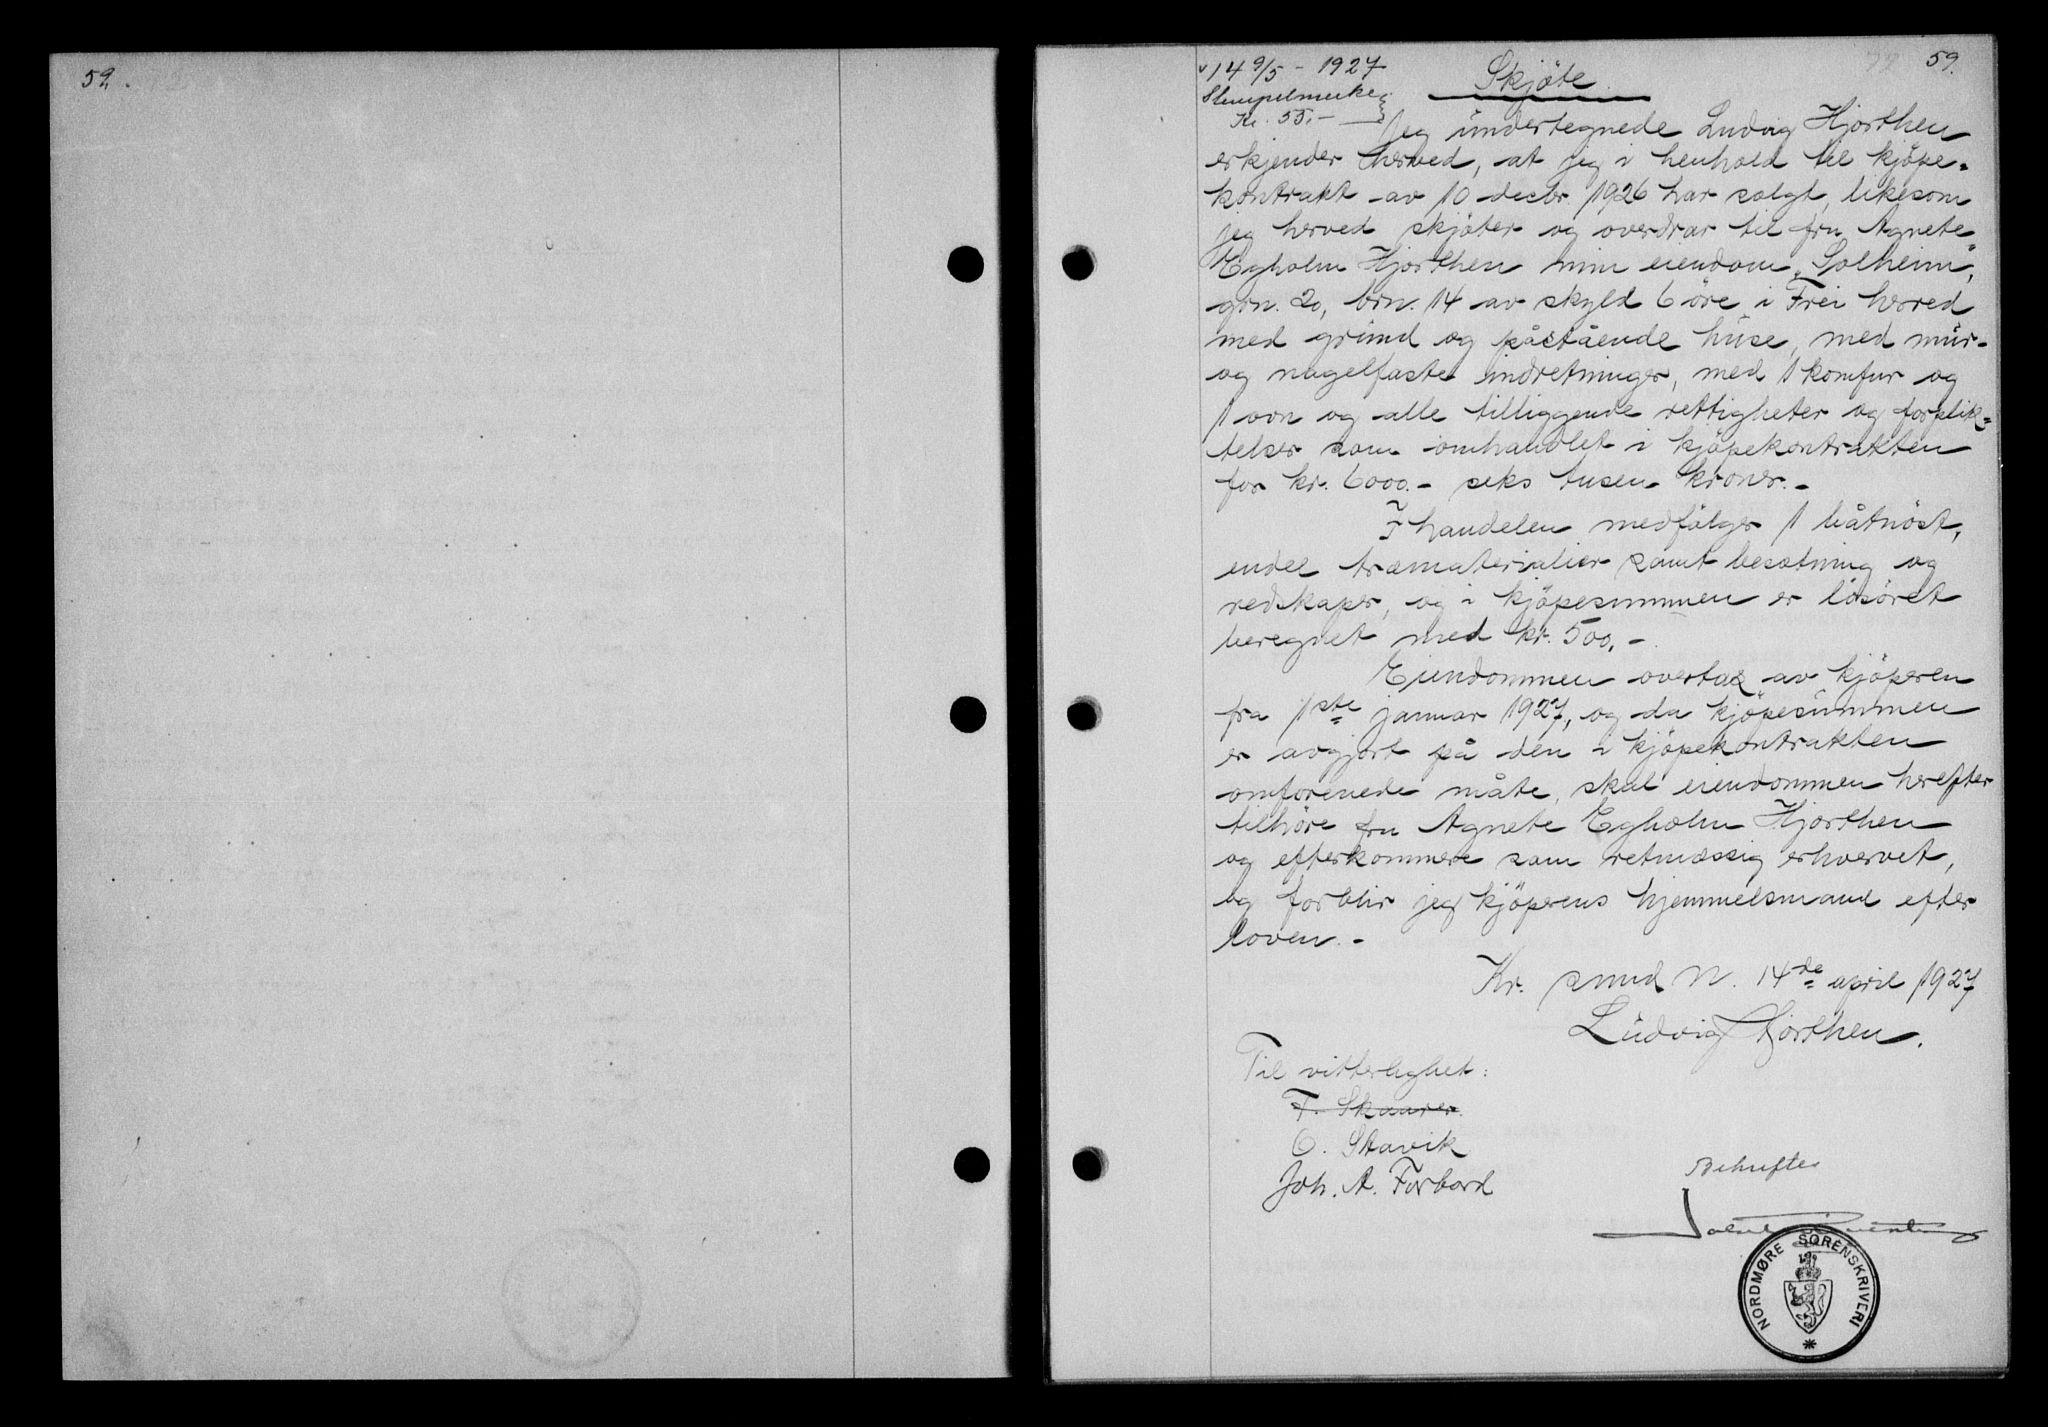 59.
59.
14 9/5 - 1927
Skjöte.
Stempelmerke
Kr. 55.-
Jeg undertegnede Ludvig Hjorthen
erkjender herved, at jeg i henhold til kjöpe-
kontrakt av 10 decbr. 1926 har solgt, likesom
jeg herved skjöter og overdrar til fru Agnete
Egholm Hjorthen min eiendom "Solheim",
grn. 20, brn. 14 av skyld 6 öre i Frei herred
med grund og påstående huse, med mur-
og nagelfaste indretninger, med 1 komfur og
1 ovn og alle tilliggende rettigheter og forplik-
telser som omhandlet i kjöpekontrakten
for kr. 6000.- seks tusen kroner.-
I handelen medfölger 1 båtnöst,
endel træmaterialier samt besætning og
redskaper, og i kjöpesummen er lösöret
beregnet med kr. 500.-
Eiendommen overtas av kjöperen
fra 1ste januar 1927, og da kjöpesummen
er avgjort på den i kjöpekontrakten
omforenede måte, skal eiendommen herefter
tilhöre fru Agnete Egholm Hjorthen
og efterkommere som retmæssig erhvervet,
og forblir jeg kjöperens hjemmelsmand efter
loven.-
Kr. sund N. 14de april 1927
Ludvig Hjorthen.
Til vitterlighet:
F. Skaurer.
O. Stavik
Joh. A. Forbord
Bekræftes
NORDMØRE SORENSKRIVERI